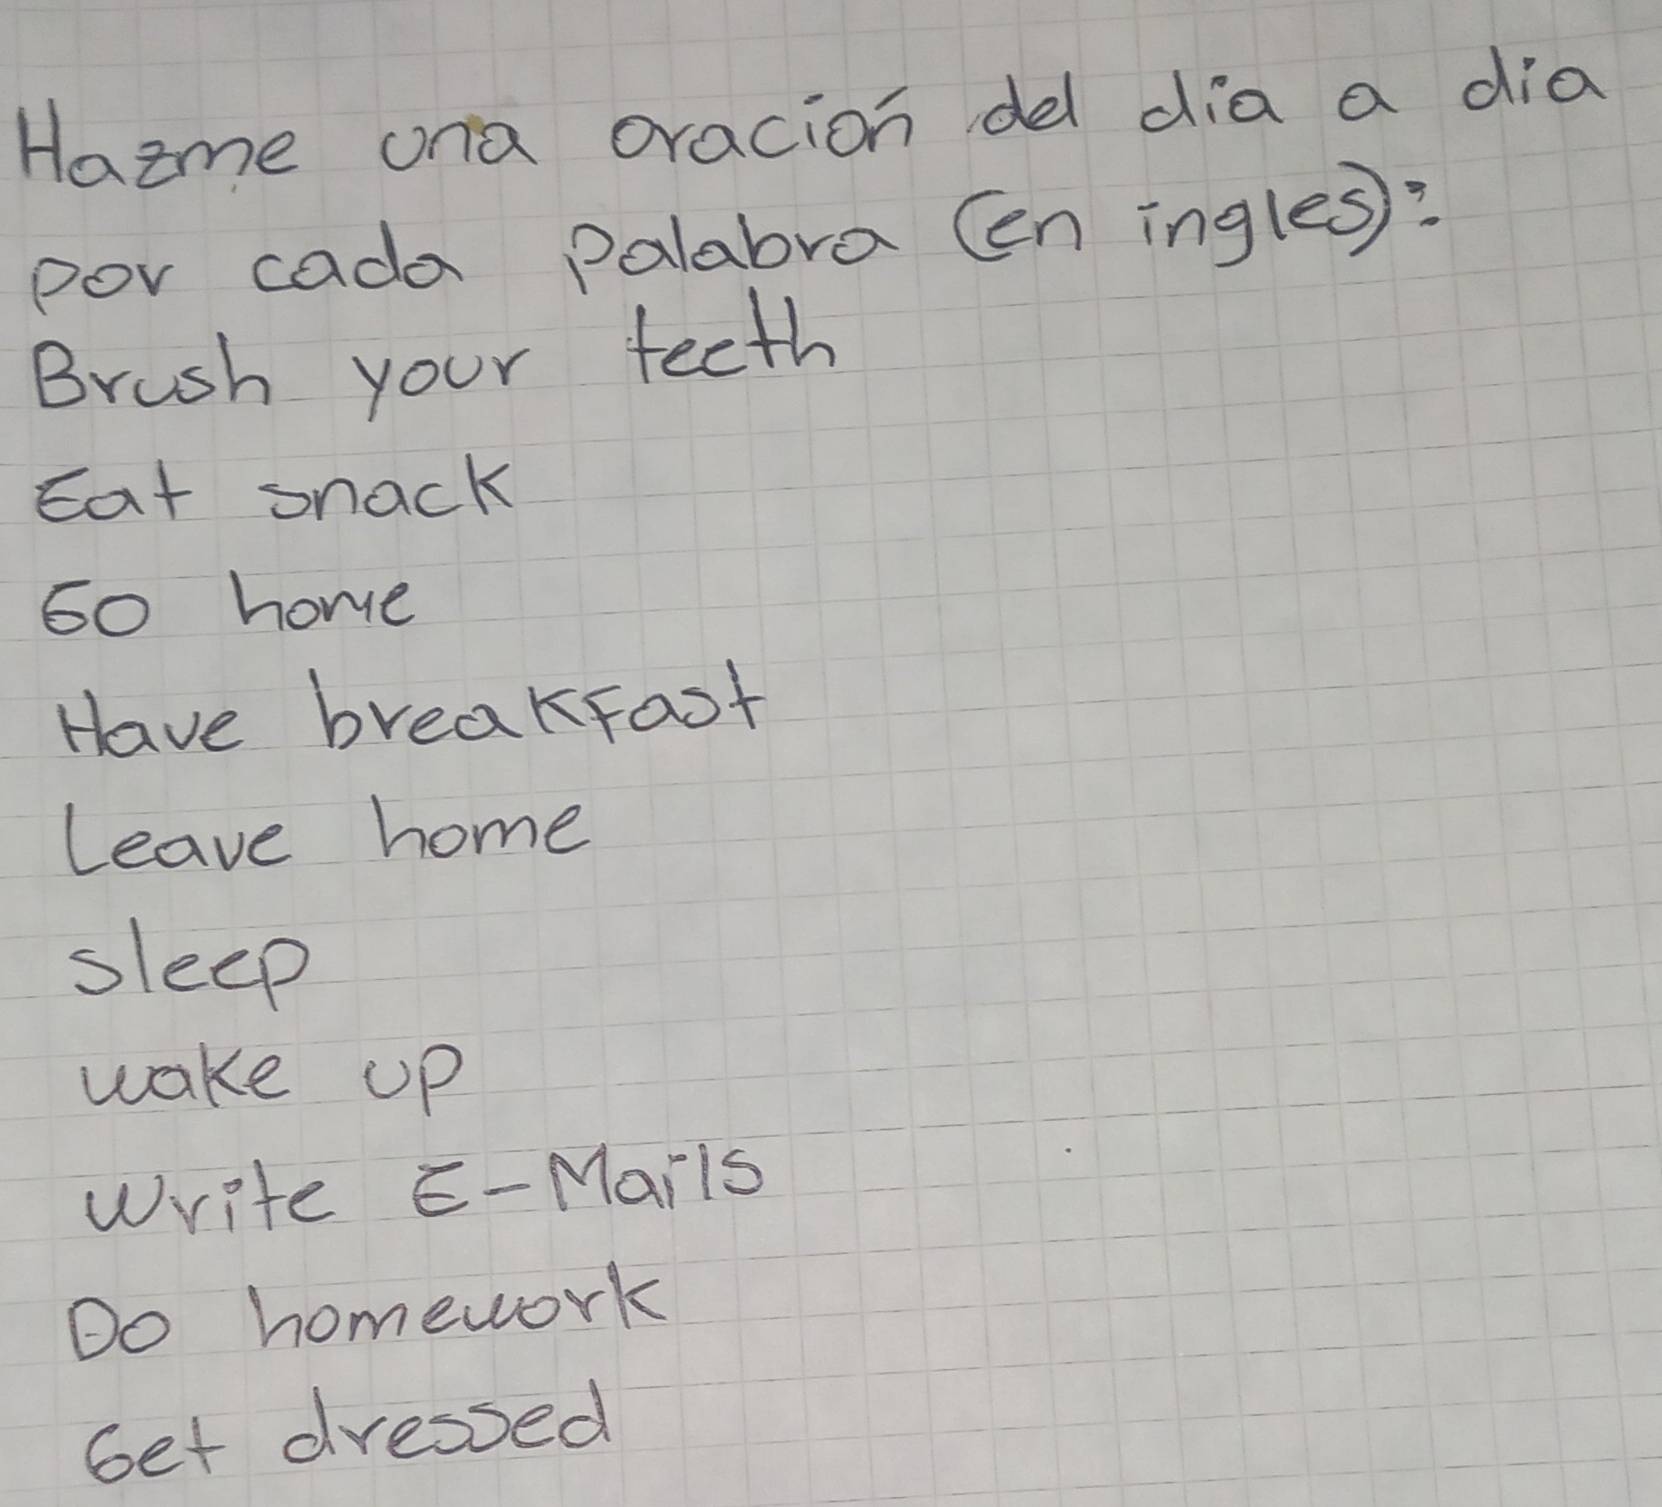 Hazme una oración del dia a dia
por cada palabra (en ingles):
Brush your teeth
Eat snack
Go home
Have breakfast
Leave home
sleep
wake up
Write E-Mails
Do homework
Get dressed